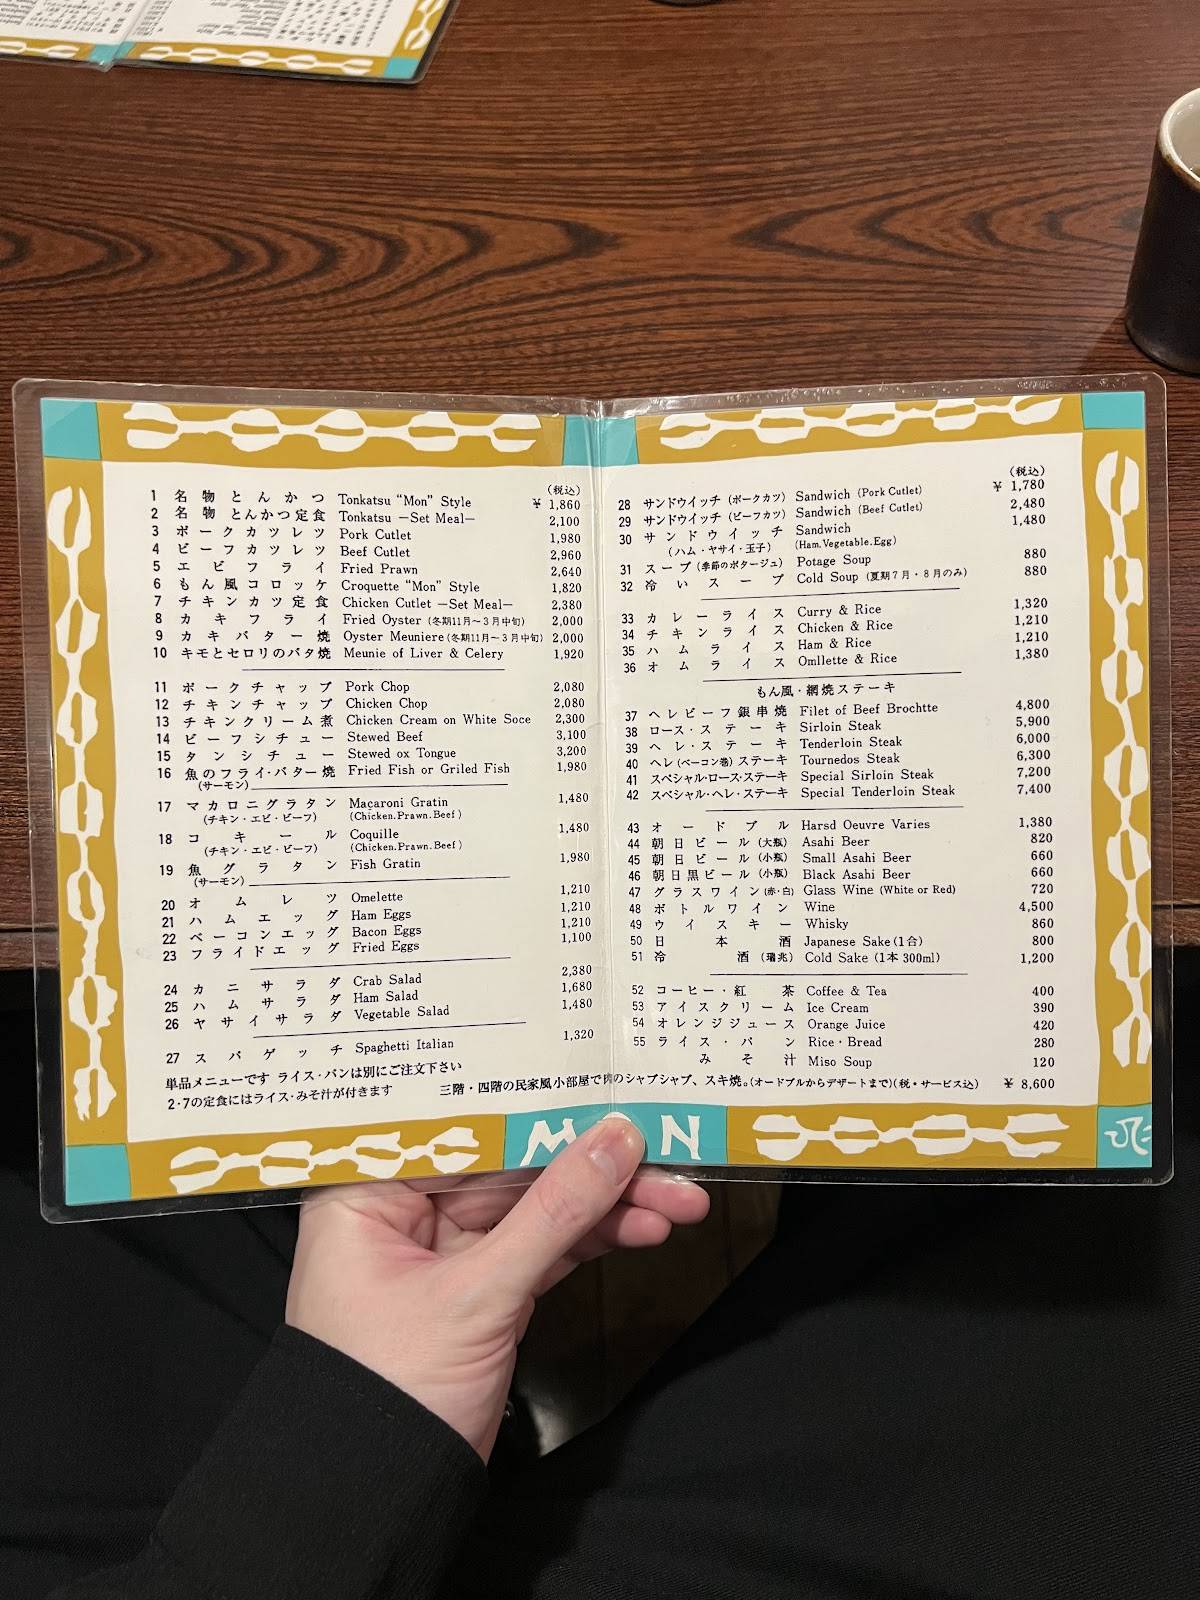 (税込)
1 名物とんかつ Tonkatsu "Mon" Style ¥ 1,860
2 名物 とんかつ定食 Tonkatsu —Set Meal— 2,100
3 ポークカツレツ Pork Cutlet 1,980
4 ビーフカツレツ Beef Cutlet 2,960
5 エビフライ Fried Prawn 2,640
6 もん風コロッケ Croquette "Mon" Style 1,820
7 チキンカツ定食 Chicken Cutlet —Set Meal— 2,380
8 カキフライ Fried Oyster (冬期11月〜3月中旬) 2,000
9 カキバター焼 Oyster Meuniere (冬期11月〜3月中旬) 2,000
10 キモとセロリのバタ焼 Meunie of Liver & Celery 1,920
11 ポークチャップ Pork Chop 2,080
12 チキンチャップ Chicken Chop 2,080
13 チキンクリーム煮 Chicken Cream on White Soce 2,300
14 ビーフシチュー Stewed Beef 3,100
15 タンシチュー Stewed ox Tongue 3,200
16 魚のフライ・バター焼 Fried Fish or Griled Fish 1,980
(サーモン)
17 マカロニグラタン Macaroni Gratin 1,480
(チキン・エビ・ビーフ) (Chicken.Prawn.Beef)
18 コキール Coquille 1,480
(チキン・エビ・ビーフ) (Chicken.Prawn.Beef)
19 魚グラタン Fish Gratin 1,980
(サーモン)
20 オムレツ Omelette 1,210
21 ハムエッグ Ham Eggs 1,210
22 ベーコンエッグ Bacon Eggs 1,210
23 フライドエッグ Fried Eggs 1,100
24 カニサラダ Crab Salad 2,380
25 ハムサラダ Ham Salad 1,680
26 ヤサイサラダ Vegetable Salad 1,480
27 スパゲッチ Spaghetti Italian 1,320
単品メニューです ライス・パンは別にご注文下さい
2・7の定食にはライス・みそ汁が付きます
(税込)
28 サンドウイッチ (ポークカツ) Sandwich (Pork Cutlet) ¥ 1,780
29 サンドウイッチ (ビーフカツ) Sandwich (Beef Cutlet) 2,480
30 サンドウイッチ Sandwich 1,480
(ハム・ヤサイ・玉子) (Ham.Vegetable.Egg)
31 スープ (季節のポタージュ) Potage Soup 880
32 冷いスープ Cold Soup (夏期7月・8月のみ) 880
33 カレーライス Curry & Rice 1,320
34 チキンライス Chicken & Rice 1,210
35 ハムライス Ham & Rice 1,210
36 オムライス Omllette & Rice 1,380
もん風・網焼ステーキ
37 ヘレビーフ銀串焼 Filet of Beef Brochtte 4,800
38 ロース・ステーキ Sirloin Steak 5,900
39 ヘレ・ステーキ Tenderloin Steak 6,000
40 ヘレ (ベーコン巻) ステーキ Tournedos Steak 6,300
41 スペシャル・ロース・ステーキ Special Sirloin Steak 7,200
42 スペシャル・ヘレ・ステーキ Special Tenderloin Steak 7,400
43 オードブル Harsd Oeuvre Varies 1,380
44 朝日ビール (大瓶) Asahi Beer 820
45 朝日ビール (小瓶) Small Asahi Beer 660
46 朝日黒ビール (小瓶) Black Asahi Beer 660
47 グラスワイン (赤・白) Glass Wine (White or Red) 720
48 ボトルワイン Wine 4,500
49 ウイスキー Whisky 860
50 日本酒 Japanese Sake (1合) 800
51 冷酒 (瑞兆) Cold Sake (1本 300ml) 1,200
52 コーヒー・紅茶 Coffee & Tea 400
53 アイスクリーム Ice Cream 390
54 オレンジジュース Orange Juice 420
55 ライス・パン Rice・Bread 280
みそ汁 Miso Soup 120
三階・四階の民家風小部屋で肉のシャブシャブ、スキ焼。(オードブルからデザートまで)(税・サービス込) ¥ 8,600